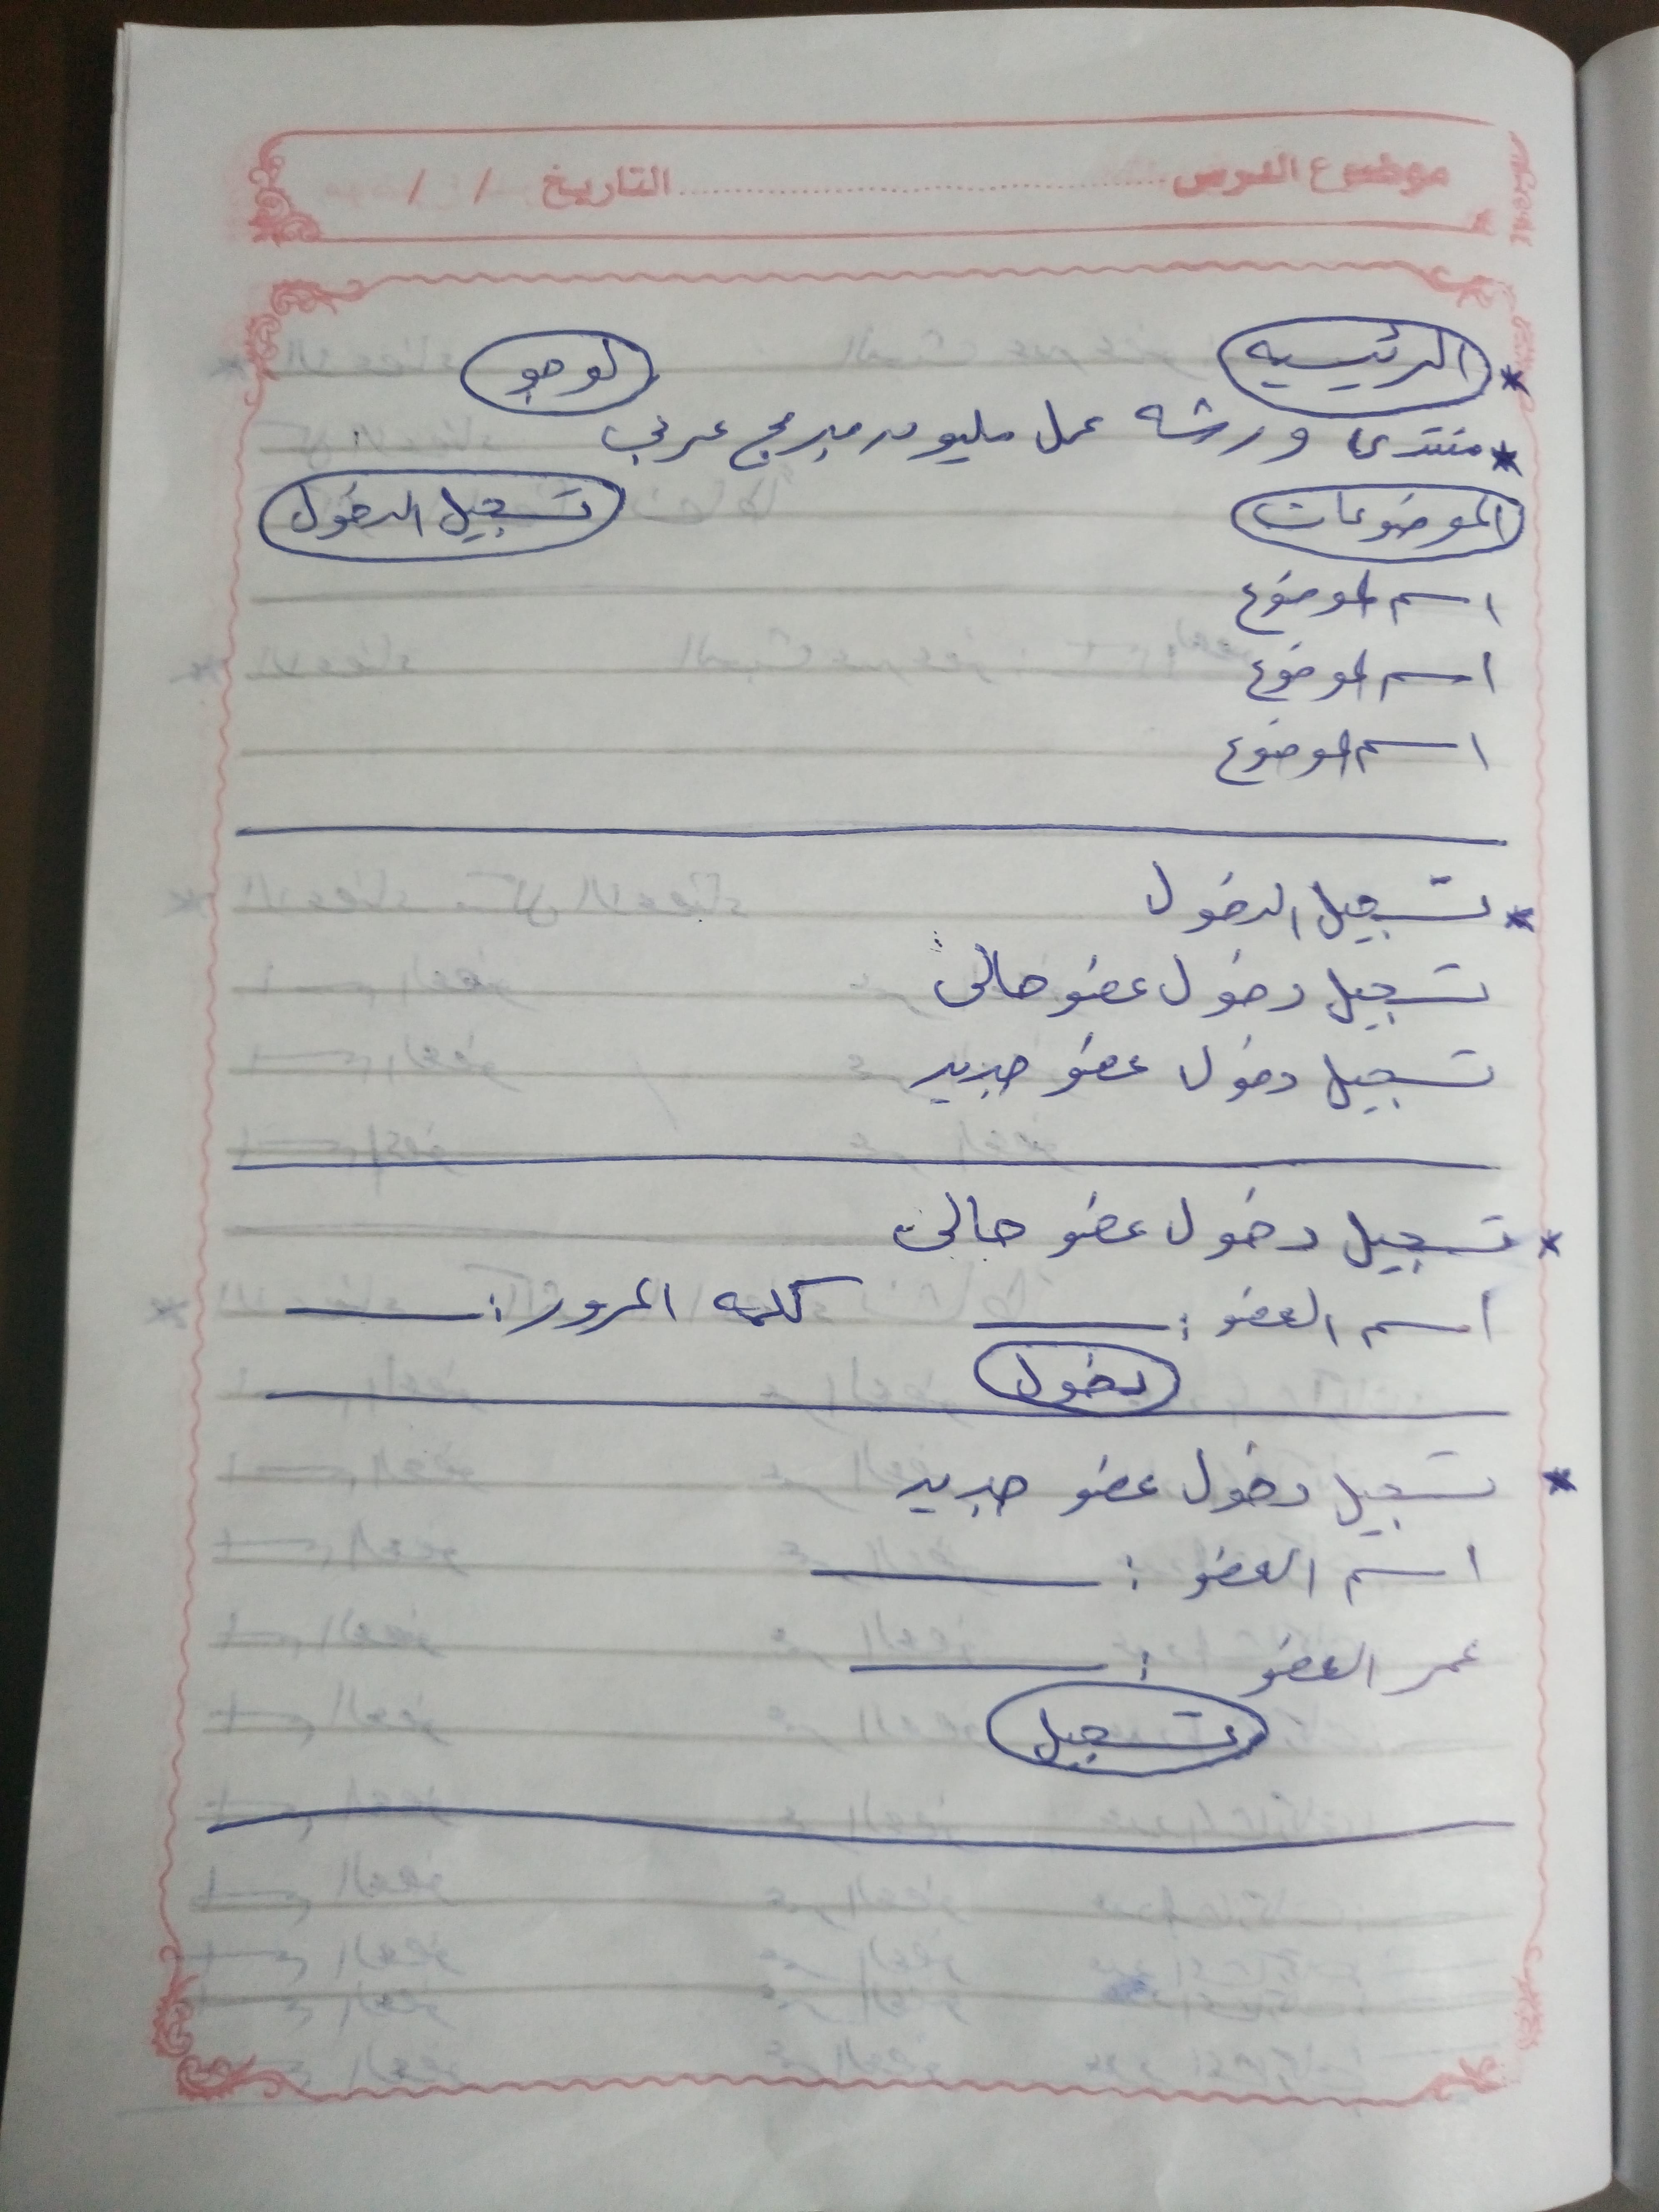 موضوع الدرس ........................ التاريخ / /
* الرئيسيه لوجو
* منتدى ورشه عمل مليون مبرمج عربي
الموضوعات تسجيل الدخول
اسم الموضوع
اسم الموضوع
اسم الموضوع
* تسجيل الدخول
تسجيل دخول عضو حالى
تسجيل دخول عضو جديد
* تسجيل دخول عضو حالى
اسم العضو : ــــــــ كلمه المرور : ــــــــ
دخول
* تسجيل دخول عضو جديد
اسم العضو : ــــــــ
عمر العضو : ــــــــ
تسجيل